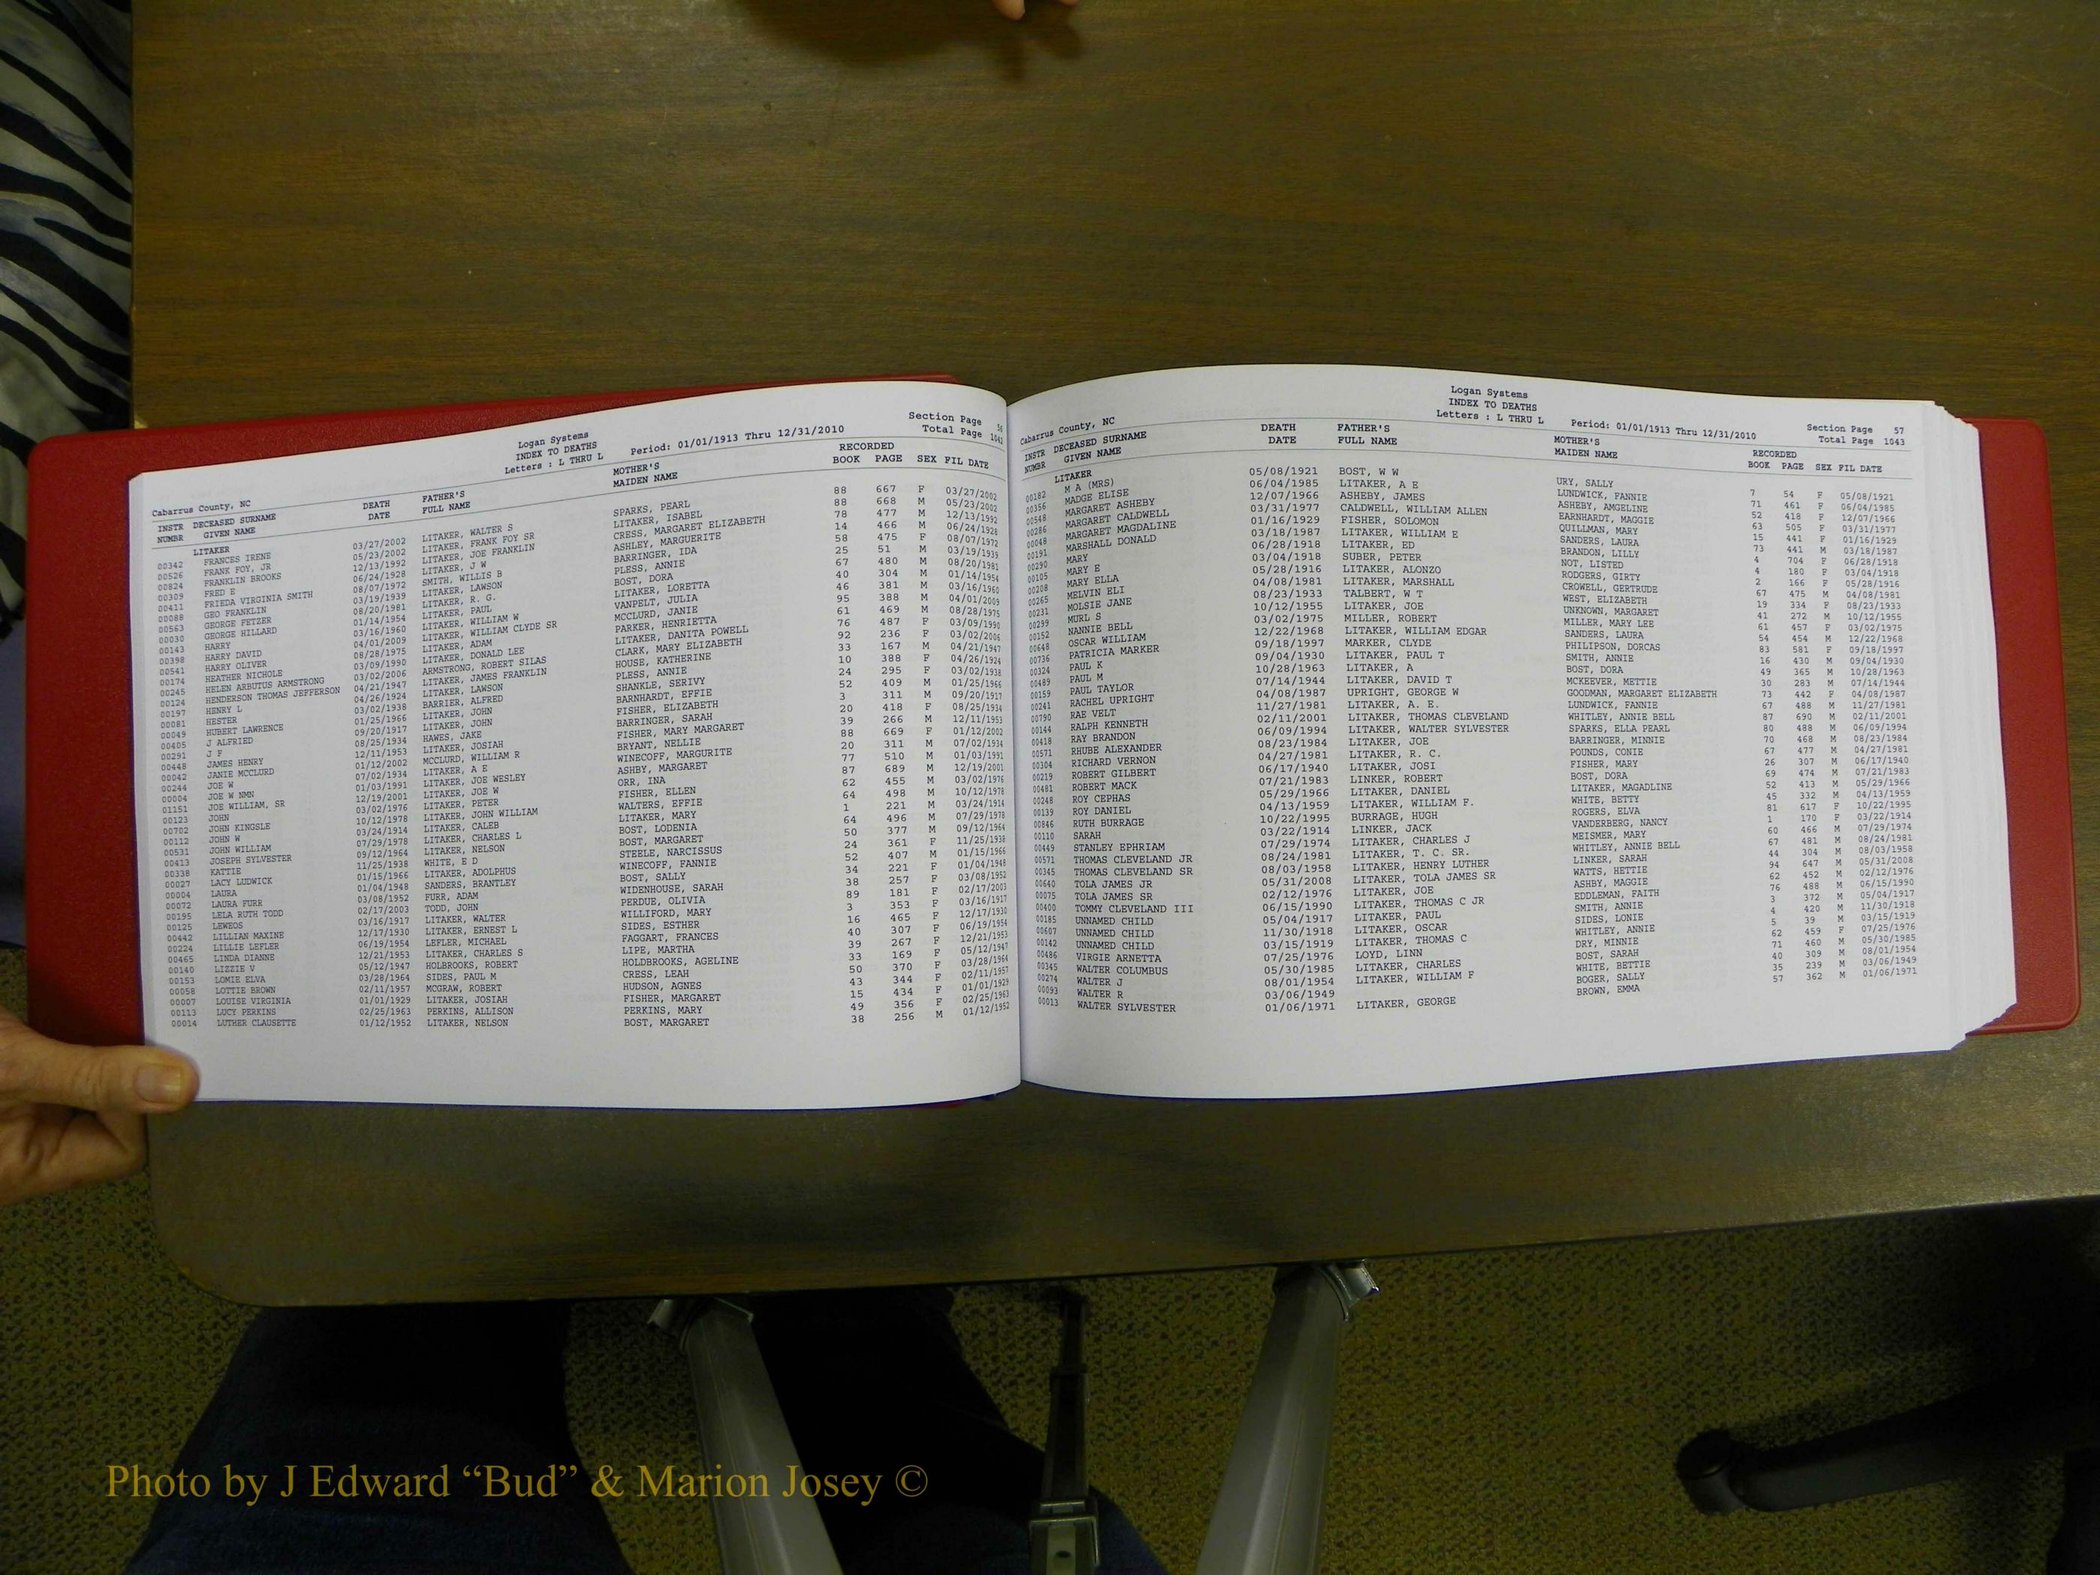 Cabarrus County, NC
Logan Systems
INDEX TO DEATHS
Letters : L THRU L
Period: 01/01/1913 Thru 12/31/2010
Section Page 56
Total Page 1042
INSTR NUMBR DECEASED SURNAME GIVEN NAME DEATH DATE FATHER'S FULL NAME MOTHER'S MAIDEN NAME RECORDED BOOK PAGE SEX FIL DATE
LITAKER
00342 FRANCES IRENE 03/27/2002 LITAKER, WALTER S SPARKS, PEARL 88 667 F 03/27/2002
00526 FRANK FOY, JR 05/23/2002 LITAKER, FRANK FOY SR LITAKER, ISABEL 88 668 M 05/23/2002
00824 FRANKLIN BROOKS 12/13/1992 LITAKER, JOE FRANKLIN CRESS, MARGARET ELIZABETH 78 477 M 12/13/1992
00309 FRED E 06/24/1928 LITAKER, J W ASHLEY, MARGUERITE 14 466 M 06/24/1928
00411 FRIEDA VIRGINIA SMITH 08/07/1972 SMITH, WILLIS B BARRINGER, IDA 58 475 F 08/07/1972
00088 GEO FRANKLIN 03/19/1939 LITAKER, LAWSON PLESS, ANNIE 25 51 M 03/19/1939
00563 GEORGE FETZER 08/20/1981 LITAKER, R. G. BOST, DORA 67 480 M 08/20/1981
00030 GEORGE HILLARD 01/14/1954 LITAKER, PAUL LITAKER, LORETTA 40 304 M 01/14/1954
00143 HARRY 03/16/1960 LITAKER, WILLIAM W VANPELT, JULIA 46 381 M 03/16/1960
00398 HARRY DAVID 04/01/2009 LITAKER, WILLIAM CLYDE SR MCCLURD, JANIE 95 388 M 04/01/2009
00541 HARRY OLIVER 08/28/1975 LITAKER, ADAM PARKER, HENRIETTA 61 469 M 08/28/1975
00174 HEATHER NICHOLE 03/09/1990 LITAKER, DONALD LEE LITAKER, DANITA POWELL 76 487 F 03/09/1990
00245 HELEN ARBUTUS ARMSTRONG 03/02/2006 ARMSTRONG, ROBERT SILAS CLARK, MARY ELIZABETH 92 236 F 03/02/2006
00124 HENDERSON THOMAS JEFFERSON 04/21/1947 LITAKER, JAMES FRANKLIN HOUSE, KATHERINE 33 167 M 04/21/1947
00197 HENRY L 04/26/1924 LITAKER, LAWSON PLESS, ANNIE 10 388 F 04/26/1924
00081 HESTER 03/02/1938 BARRIER, ALFRED SHANKLE, SERIVY 24 295 F 03/02/1938
00049 HUBERT LAWRENCE 01/25/1966 LITAKER, JOHN BARNHARDT, EFFIE 52 409 M 01/25/1966
00405 J ALFRIED 09/20/1917 LITAKER, JOHN FISHER, ELIZABETH 3 311 M 09/20/1917
00291 J F 08/25/1934 HAWES, JAKE BARRINGER, SARAH 20 418 F 08/25/1934
00448 JAMES HENRY 12/11/1953 LITAKER, JOSIAH FISHER, MARY MARGARET 39 266 M 12/11/1953
00042 JANIE MCCLURD 01/12/2002 MCCLURD, WILLIAM R BRYANT, NELLIE 88 669 F 01/12/2002
00244 JOE W 07/02/1934 LITAKER, A E WINECOFF, MARGURITE 20 311 M 07/02/1934
00004 JOE W NMN 01/03/1991 LITAKER, JOE WESLEY ASHBY, MARGARET 77 510 M 01/03/1991
01151 JOE WILLIAM, SR 12/19/2001 LITAKER, JOE W ORR, INA 87 689 M 12/19/2001
00123 JOHN 03/02/1976 LITAKER, PETER FISHER, ELLEN 62 455 M 03/02/1976
00702 JOHN KINGSLE 10/12/1978 LITAKER, JOHN WILLIAM WALTERS, EFFIE 64 498 M 10/12/1978
00112 JOHN W 03/24/1914 LITAKER, CALEB LITAKER, MARY 1 221 M 03/24/1914
00531 JOHN WILLIAM 07/29/1978 LITAKER, CHARLES L BOST, LODENIA 64 496 M 07/29/1978
00413 JOSEPH SYLVESTER 09/12/1964 LITAKER, NELSON BOST, MARGARET 50 377 M 09/12/1964
00338 KATTIE 11/25/1938 WHITE, E D STEELE, NARCISSUS 24 361 F 11/25/1938
00027 LACY LUDWICK 01/15/1966 LITAKER, ADOLPHUS WINECOFF, FANNIE 52 407 M 01/15/1966
00004 LAURA 01/04/1948 SANDERS, BRANTLEY BOST, SALLY 34 221 F 01/04/1948
00072 LAURA FURR 03/08/1952 FURR, ADAM WIDENHOUSE, SARAH 38 257 F 03/08/1952
00195 LELA RUTH TODD 02/17/2003 TODD, JOHN PERDUE, OLIVIA 89 181 F 02/17/2003
00125 LEWEOS 03/16/1917 LITAKER, WALTER WILLIFORD, MARY 3 353 F 03/16/1917
00442 LILLIAN MAXINE 12/17/1930 LITAKER, ERNEST L SIDES, ESTHER 16 465 F 12/17/1930
00224 LILLIE LEFLER 06/19/1954 LEFLER, MICHAEL FAGGART, FRANCES 40 307 F 06/19/1954
00465 LINDA DIANNE 12/21/1953 LITAKER, CHARLES S LIPE, MARTHA 39 267 F 12/21/1953
00140 LIZZIE V 05/12/1947 HOLBROOKS, ROBERT HOLDBROOKS, AGELINE 33 169 F 05/12/1947
00153 LOMIE ELVA 03/28/1964 SIDES, PAUL M CRESS, LEAH 50 370 F 03/28/1964
00058 LOTTIE BROWN 02/11/1957 MCGRAW, ROBERT HUDSON, AGNES 43 344 F 02/11/1957
00007 LOUISE VIRGINIA 01/01/1929 LITAKER, JOSIAH FISHER, MARGARET 15 434 F 01/01/1929
00113 LUCY PERKINS 02/25/1963 PERKINS, ALLISON PERKINS, MARY 49 356 F 02/25/1963
00014 LUTHER CLAUSETTE 01/12/1952 LITAKER, NELSON BOST, MARGARET 38 256 M 01/12/1952
Cabarrus County, NC
Logan Systems
INDEX TO DEATHS
Letters : L THRU L
Period: 01/01/1913 Thru 12/31/2010
Section Page 57
Total Page 1043
INSTR NUMBR DECEASED SURNAME GIVEN NAME DEATH DATE FATHER'S FULL NAME MOTHER'S MAIDEN NAME RECORDED BOOK PAGE SEX FIL DATE
LITAKER
00182 M A (MRS) 05/08/1921 BOST, W W URY, SALLY 7 54 F 05/08/1921
00356 MADGE ELISE 06/04/1985 LITAKER, A E LUNDWICK, FANNIE 71 461 F 06/04/1985
00548 MARGARET ASHEBY 12/07/1966 ASHEBY, JAMES ASHEBY, AMGELINE 52 418 F 12/07/1966
00286 MARGARET CALDWELL 03/31/1977 CALDWELL, WILLIAM ALLEN EARNHARDT, MAGGIE 63 505 F 03/31/1977
00048 MARGARET MAGDALINE 01/16/1929 FISHER, SOLOMON QUILLMAN, MARY 15 441 F 01/16/1929
00191 MARSHALL DONALD 03/18/1987 LITAKER, WILLIAM E SANDERS, LAURA 73 441 M 03/18/1987
00290 MARY 06/28/1918 LITAKER, ED BRANDON, LILLY 4 704 F 06/28/1918
00105 MARY E 03/04/1918 SUBER, PETER NOT, LISTED 4 180 F 03/04/1918
00208 MARY ELLA 05/28/1916 LITAKER, ALONZO RODGERS, GIRTY 2 166 F 05/28/1916
00265 MELVIN ELI 04/08/1981 LITAKER, MARSHALL CROWELL, GERTRUDE 67 475 M 04/08/1981
00231 MOLSIE JANE 08/23/1933 TALBERT, W T WEST, ELIZABETH 19 334 F 08/23/1933
00299 MURL S 10/12/1955 LITAKER, JOE UNKNOWN, MARGARET 41 272 M 10/12/1955
00152 NANNIE BELL 03/02/1975 MILLER, ROBERT MILLER, MARY LEE 61 457 F 03/02/1975
00648 OSCAR WILLIAM 12/22/1968 LITAKER, WILLIAM EDGAR SANDERS, LAURA 54 454 M 12/22/1968
00736 PATRICIA MARKER 09/18/1997 MARKER, CLYDE PHILIPSON, DORCAS 83 581 F 09/18/1997
00324 PAUL K 09/04/1930 LITAKER, PAUL T SMITH, ANNIE 16 430 M 09/04/1930
00489 PAUL M 10/28/1963 LITAKER, A BOST, DORA 49 365 M 10/28/1963
00159 PAUL TAYLOR 07/14/1944 LITAKER, DAVID T MCKEEVER, METTIE 30 283 M 07/14/1944
00241 RACHEL UPRIGHT 04/08/1987 UPRIGHT, GEORGE W GOODMAN, MARGARET ELIZABETH 73 442 F 04/08/1987
00790 RAE VELT 11/27/1981 LITAKER, A. E. LUNDWICK, FANNIE 67 488 M 11/27/1981
00144 RALPH KENNETH 02/11/2001 LITAKER, THOMAS CLEVELAND WHITLEY, ANNIE BELL 87 690 M 02/11/2001
00418 RAY BRANDON 06/09/1994 LITAKER, WALTER SYLVESTER SPARKS, ELLA PEARL 80 488 M 06/09/1994
00571 RHUBE ALEXANDER 08/23/1984 LITAKER, JOE BARRINGER, MINNIE 70 468 M 08/23/1984
00304 RICHARD VERNON 04/27/1981 LITAKER, R. C. POUNDS, CONIE 67 477 M 04/27/1981
00219 ROBERT GILBERT 06/17/1940 LITAKER, JOSI FISHER, MARY 26 307 M 06/17/1940
00481 ROBERT MACK 07/21/1983 LINKER, ROBERT BOST, DORA 69 474 M 07/21/1983
00248 ROY CEPHAS 05/29/1966 LITAKER, DANIEL LITAKER, MAGADLINE 52 413 M 05/29/1966
00139 ROY DANIEL 04/13/1959 LITAKER, WILLIAM F. WHITE, BETTY 45 332 M 04/13/1959
00846 RUTH BURRAGE 10/22/1995 BURRAGE, HUGH ROGERS, ELVA 81 617 F 10/22/1995
00110 SARAH 03/22/1914 LINKER, JACK VANDERBERG, NANCY 1 170 F 03/22/1914
00449 STANLEY EPHRIAM 07/29/1974 LITAKER, CHARLES J MEISMER, MARY 60 466 M 07/29/1974
00571 THOMAS CLEVELAND JR 08/24/1981 LITAKER, T. C. SR. WHITLEY, ANNIE BELL 67 481 M 08/24/1981
00345 THOMAS CLEVELAND SR 08/03/1958 LITAKER, HENRY LUTHER LINKER, SARAH 44 304 M 08/03/1958
00640 TOLA JAMES JR 05/31/2008 LITAKER, TOLA JAMES SR WATTS, HETTIE 94 647 M 05/31/2008
00075 TOLA JAMES SR 02/12/1976 LITAKER, JOE ASHBY, MAGGIE 62 452 M 02/12/1976
00400 TOMMY CLEVELAND III 06/15/1990 LITAKER, THOMAS C JR EDDLEMAN, FAITH 76 488 M 06/15/1990
00185 UNNAMED CHILD 05/04/1917 LITAKER, PAUL SMITH, ANNIE 3 372 M 05/04/1917
00607 UNNAMED CHILD 11/30/1918 LITAKER, OSCAR SIDES, LONIE 4 420 M 11/30/1918
00142 UNNAMED CHILD 03/15/1919 LITAKER, THOMAS C WHITLEY, ANNIE 5 39 M 03/15/1919
00486 VIRGIE ARNETTA 07/25/1976 LOYD, LINN DRY, MINNIE 62 459 F 07/25/1976
00345 WALTER COLUMBUS 05/30/1985 LITAKER, CHARLES BOST, SARAH 71 460 M 05/30/1985
00274 WALTER J 08/01/1954 LITAKER, WILLIAM F WHITE, BETTIE 40 309 M 08/01/1954
00093 WALTER R 03/06/1949 BOGER, SALLY 35 239 M 03/06/1949
00013 WALTER SYLVESTER 01/06/1971 LITAKER, GEORGE BROWN, EMMA 57 362 M 01/06/1971
Photo by J Edward “Bud” & Marion Josey ©